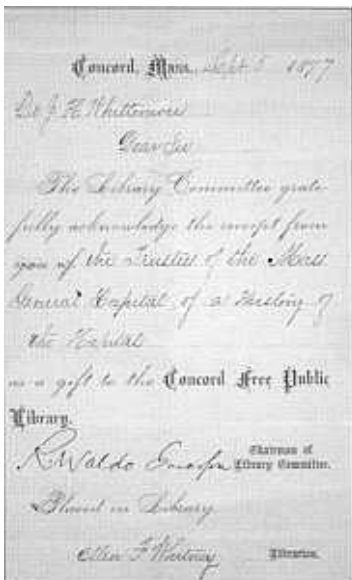 Concord, Mass., Sept 5 1877
Dr J. H. Whittemore
Dear Sir
The Library Committee grate-
fully acknowledge the receipt from
you of the Trustees of the Mass
General Hospital, of a History of
the Hospital
as a gift to the Concord Free Public
Library.
R. Waldo Emerson Chairman of
Library Committee.
Placed in Library.
F Whitney Librarian.